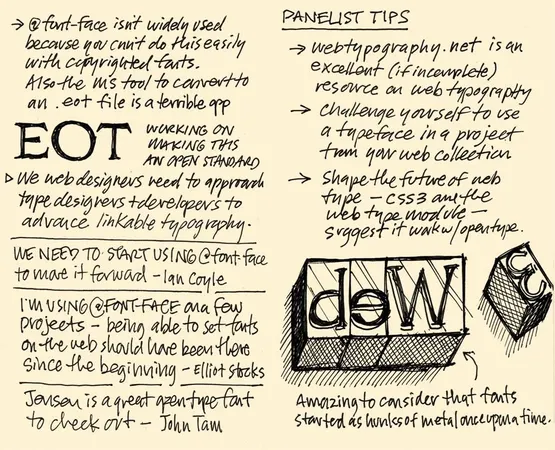 → @font-face isn't widely used
because you can't do this easily
with copyrighted fonts.
Also the MS tool to convert to
an .eot file is a terrible app
EOT
WORKING ON
MAKING THIS
AN OPEN STANDARD
▷ We web designers need to approach
type designers + developers to
advance linkable typography.
WE NEED TO START USING @font-face
to move it forward - Ian Coyle
I'M USING @FONT-FACE on a few
projects - being able to set fonts
on the web should have been there
since the beginning - Elliot Stocks
Jensen is a great opentype font
to check out - John Tam
PANELIST TIPS
→ webtypography.net is an
excellent (if incomplete)
resource on web typography
→ Challenge yourself to use
a typeface in a project
from your web collection
→ Shape the future of web
type - CSS3 and the
web type module -
suggest it work w/opentype.
Web
Amazing to consider that fonts
started as hunks of metal once upon a time.